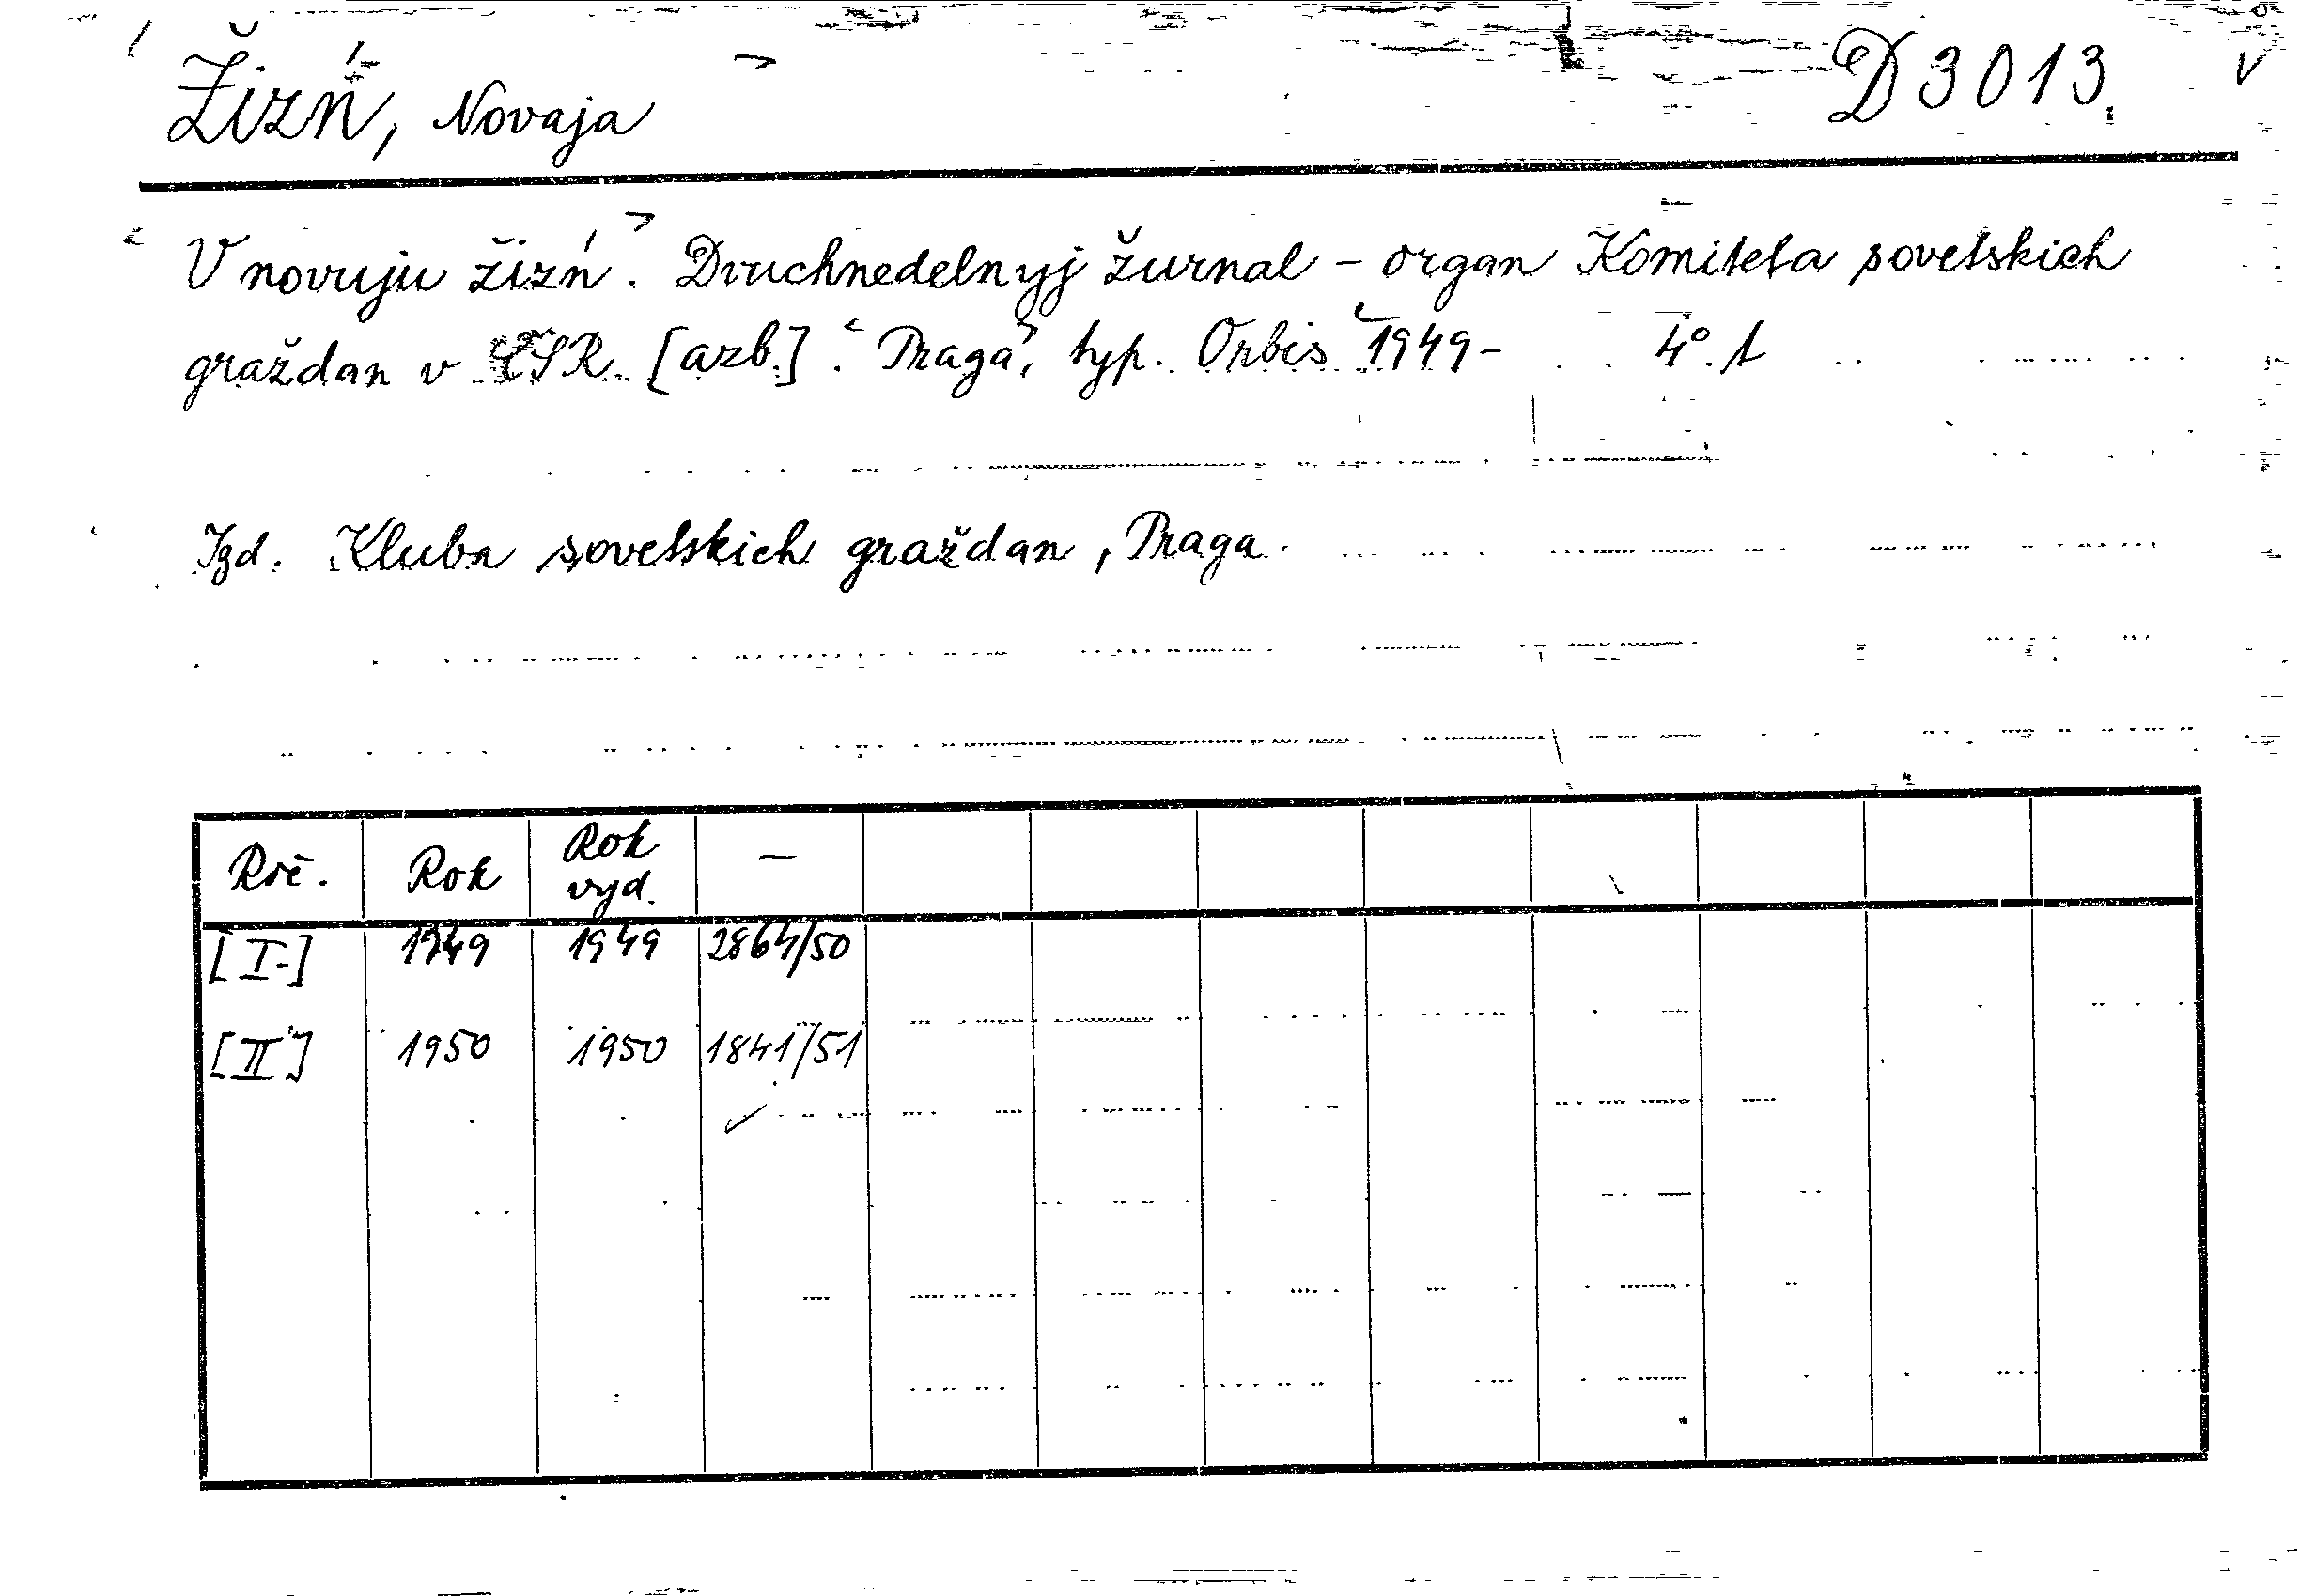 Žizń, Novaja D 3013
V novuju žizń. Dvuchnedelnyj žurnal - organ Komiteta sovetskich
graždan v ČSR. [azb.]. Praga, typ. Orbis 1949- 4°. t
Izd. Kluba sovetskich graždan, Praga.
Roč. Rok Rok vyd. —
[I-] 1949 1949 2864/50
[II] 1950 1950 1841/51